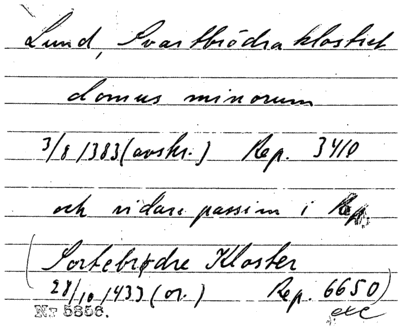 Lund, Svartbrödraklostret
domus minorum
3/8 1383 (avskr.) Rep. 3410
och vidare passim i Rep.
(Sortebrødre Kloster
28/10 1433 (or.) Rep. 6650)
etc
Nr 5856.